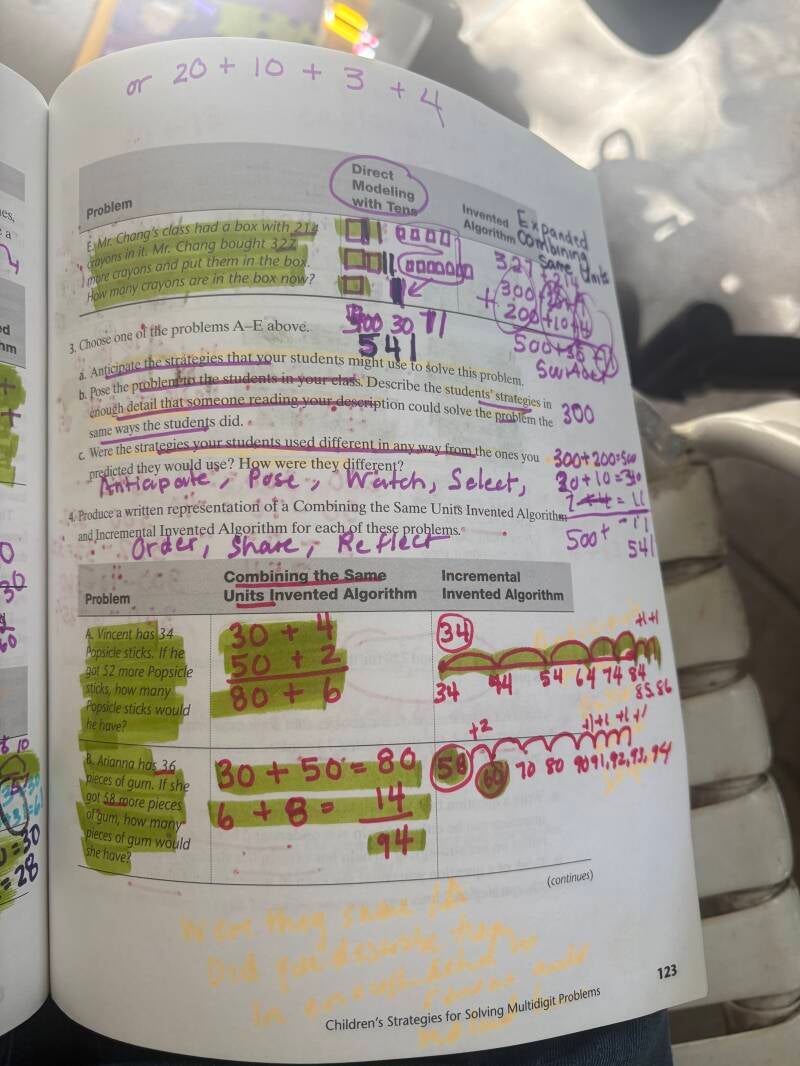 or 20 + 10 + 3 + 4
Problem
Direct
Modeling
with Tens
Invented
Algorithm
Expanded
Combining
same Units
E. Mr. Chang's class had a box with 214
crayons in it. Mr. Chang bought 327
more crayons and put them in the box.
How many crayons are in the box now?
500 30 11
541
3. Choose one of the problems A–E above.
a. Anticipate the strategies that your students might use to solve this problem.
b. Pose the problem to the students in your class. Describe the students' strategies in
enough detail that someone reading your description could solve the problem the
same ways the students did.
c. Were the strategies your students used different in any way from the ones you
predicted they would use? How were they different?
Anticipate, Pose, Watch, Select,
300
300+200=500
4. Produce a written representation of a Combining the Same Units Invented Algorithm
and Incremental Invented Algorithm for each of these problems.
Order, Share, Reflect
541
Problem
Combining the Same
Units Invented Algorithm
Incremental
Invented Algorithm
A. Vincent has 34
Popsicle sticks. If he
got 52 more Popsicle
sticks, how many
Popsicle sticks would
he have?
30 + 4
50 + 2
80 + 6
34
+1+1
34 44 54 64 74 84
85.86
B. Arianna has 36
pieces of gum. If she
got 58 more pieces
of gum, how many
pieces of gum would
she have?
30 + 50 = 80
6 + 8 = 14
94
+2
+1+1+1+1
58 60 70 80 90 91, 92, 93, 94
(continues)
Children's Strategies for Solving Multidigit Problems
123